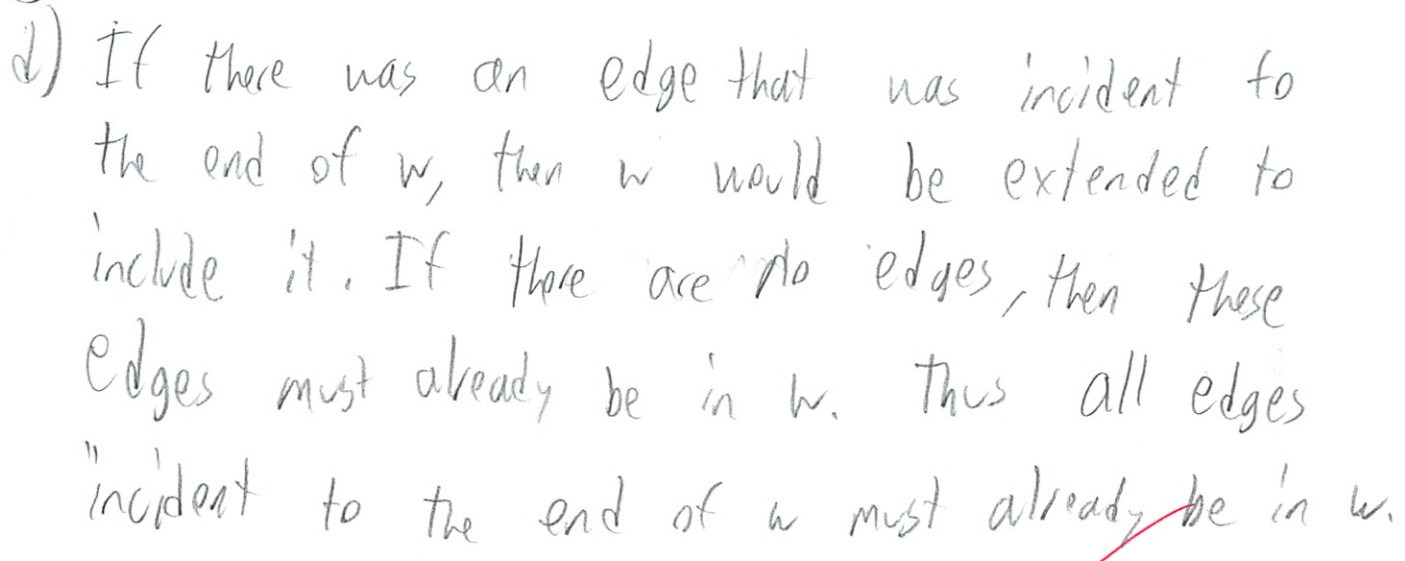 d) If there was an edge that was incident to
the end of w, then w would be extended to
include it. If there are no edges, then these
edges must already be in w. Thus all edges
incident to the end of w must already be in w.